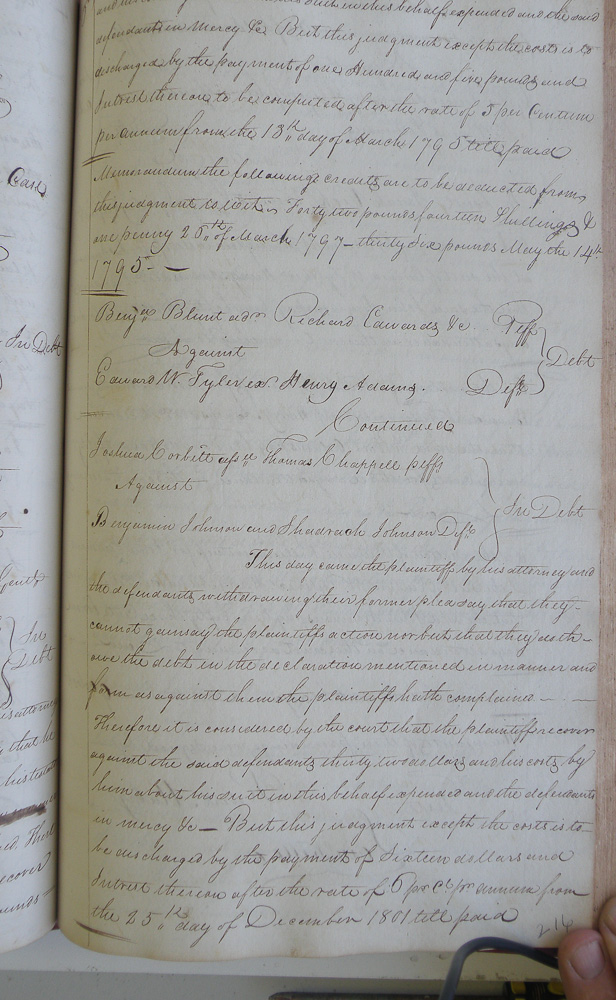 in this behalf expended and the said
defendants in mercy &c. But this judgment except the costs is to
discharged by the payment of one Hundred and five pounds and
Interest thereon to be computed after the rate of 5 per Centum
per annum from the 13th day of March 1795 till paid
Memorandum the following credits are to be deducted from
this judgment to wit Forty two pounds fourteen Shillings &
one penny 26th of March 1797 – thirty Six pounds May the 14th
1795 –
Benjn Blunt adr Richard Edwards &c. Plff
Against
Debt
Edward W. Tyler ex. Henry Adams. Deft
Continued
Joshua Corbitt assee Thomas Chappell plff
Against
In Debt
Benjamin Johnson and Shadrach Johnson Defts
This day came the plaintiff by his attorney and
the defendants withdrawing their former plea say that they
cannot gainsay the plaintiffs action nor but that they do th
owe the debt in the declaration mentioned in manner and
form as against them the plaintiff hath complained –
Therefore it is considered by the court that the plaintiff recover
against the said defendants thirty two dollars and his costs by
him about his suit in this behalf expended and the defendants
in mercy &c – But this judgment except the costs is to
be discharged by the payment of Sixteen dollars and
Interest thereon after the rate of 6 pr Ct pr annum from
the 25th day of December 1801 till paid
216
Case
In Debt
Gent
In
Debt
his attorney
that he